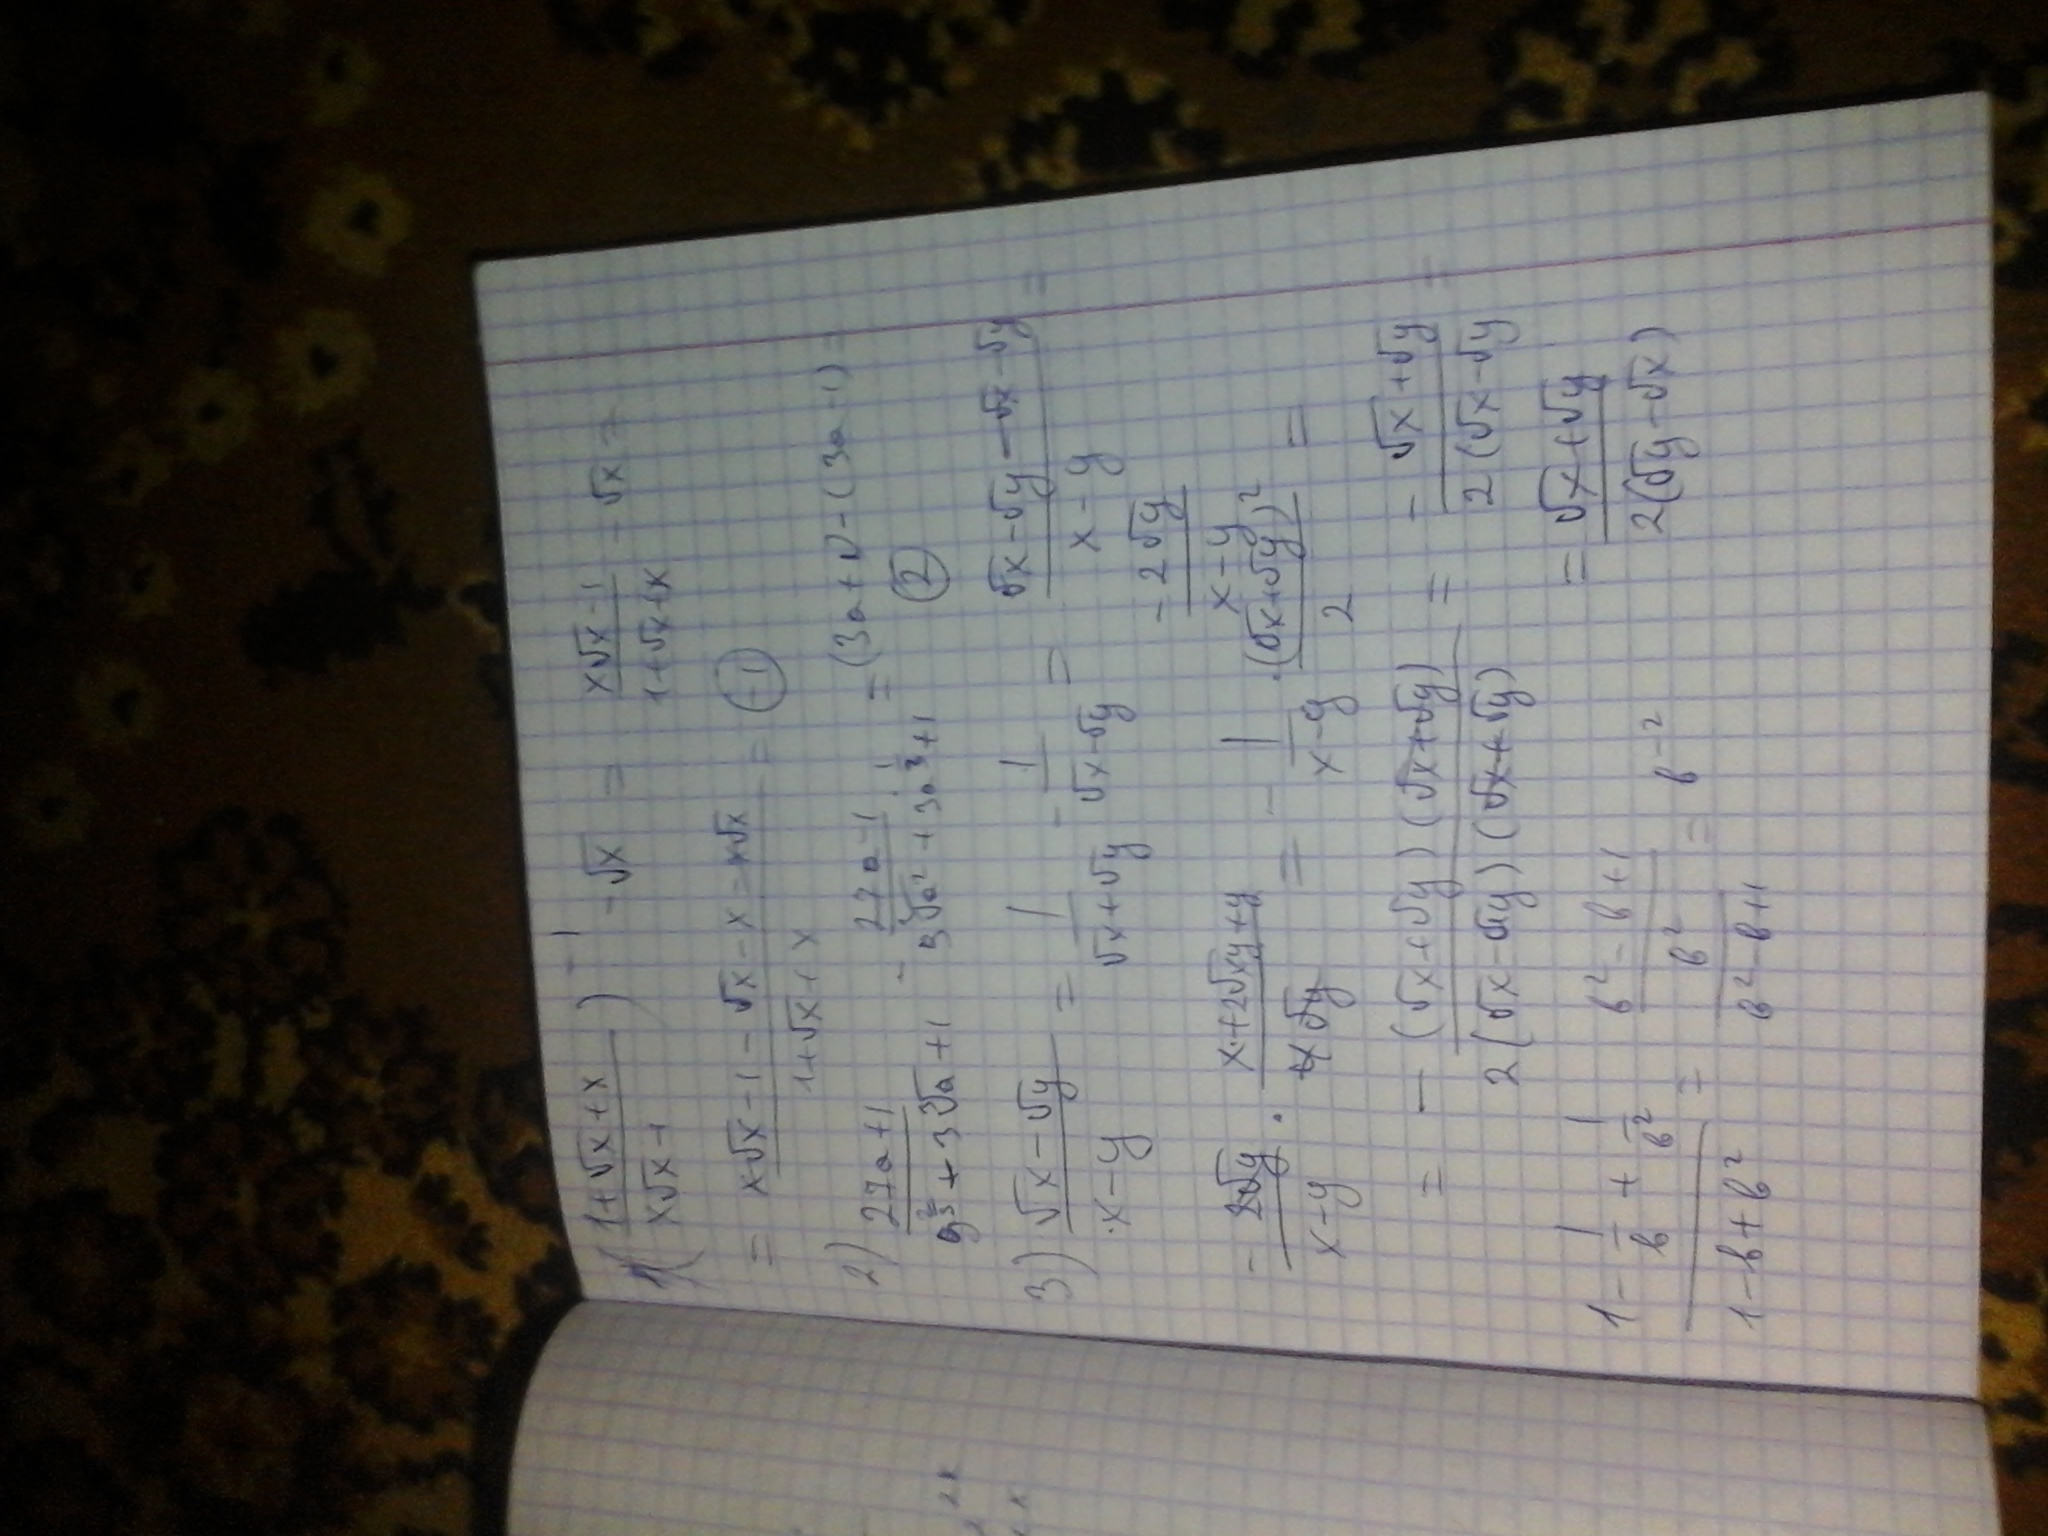 1) ((1+√x+x)/(x√x-1))^-1 - √x = (x√x-1)/(1+√x+x) - √x =
= (x√x-1-√x-x-x√x)/(1+√x+x) = (-1)
2) (27a+1)/(9^(2/3)+3∛a+1) - (27a-1)/(9∛a²+3a^(1/3)+1) = (3a+1)-(3a-1) =
(2)
3) (√x-√y)/(x-y) = 1/(√x+√y) - 1/(√x-√y) = (√x-√y-√x-√y)/(x-y) =
-2√y/(x-y)
-2√y/(x-y) · (x+2√xy+y)/(4√y) = -1/(x-y) · (√x+√y)²/2 =
= -(√x+√y)(√x+√y)/(2(√x-√y)(√x+√y)) = -(√x+√y)/(2(√x-√y) =
= (√x+√y)/(2(√y-√x))
(1-1/b+1/b²)/(1-b+b²) = ((b²-b+1)/b²)/(b²-b+1) = b^-2